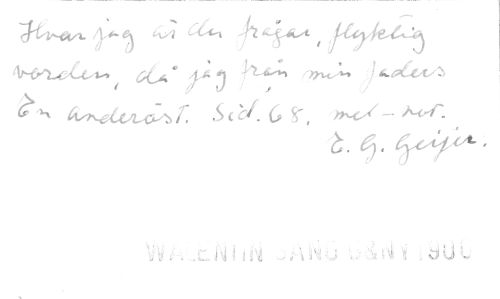 Hvar jag är du frågar, flyktig
vorden, då jag från min faders
En anderöst. Sid. 68. mel-not.
E. G. Geijer.
WALENTIN SÅNG 1900